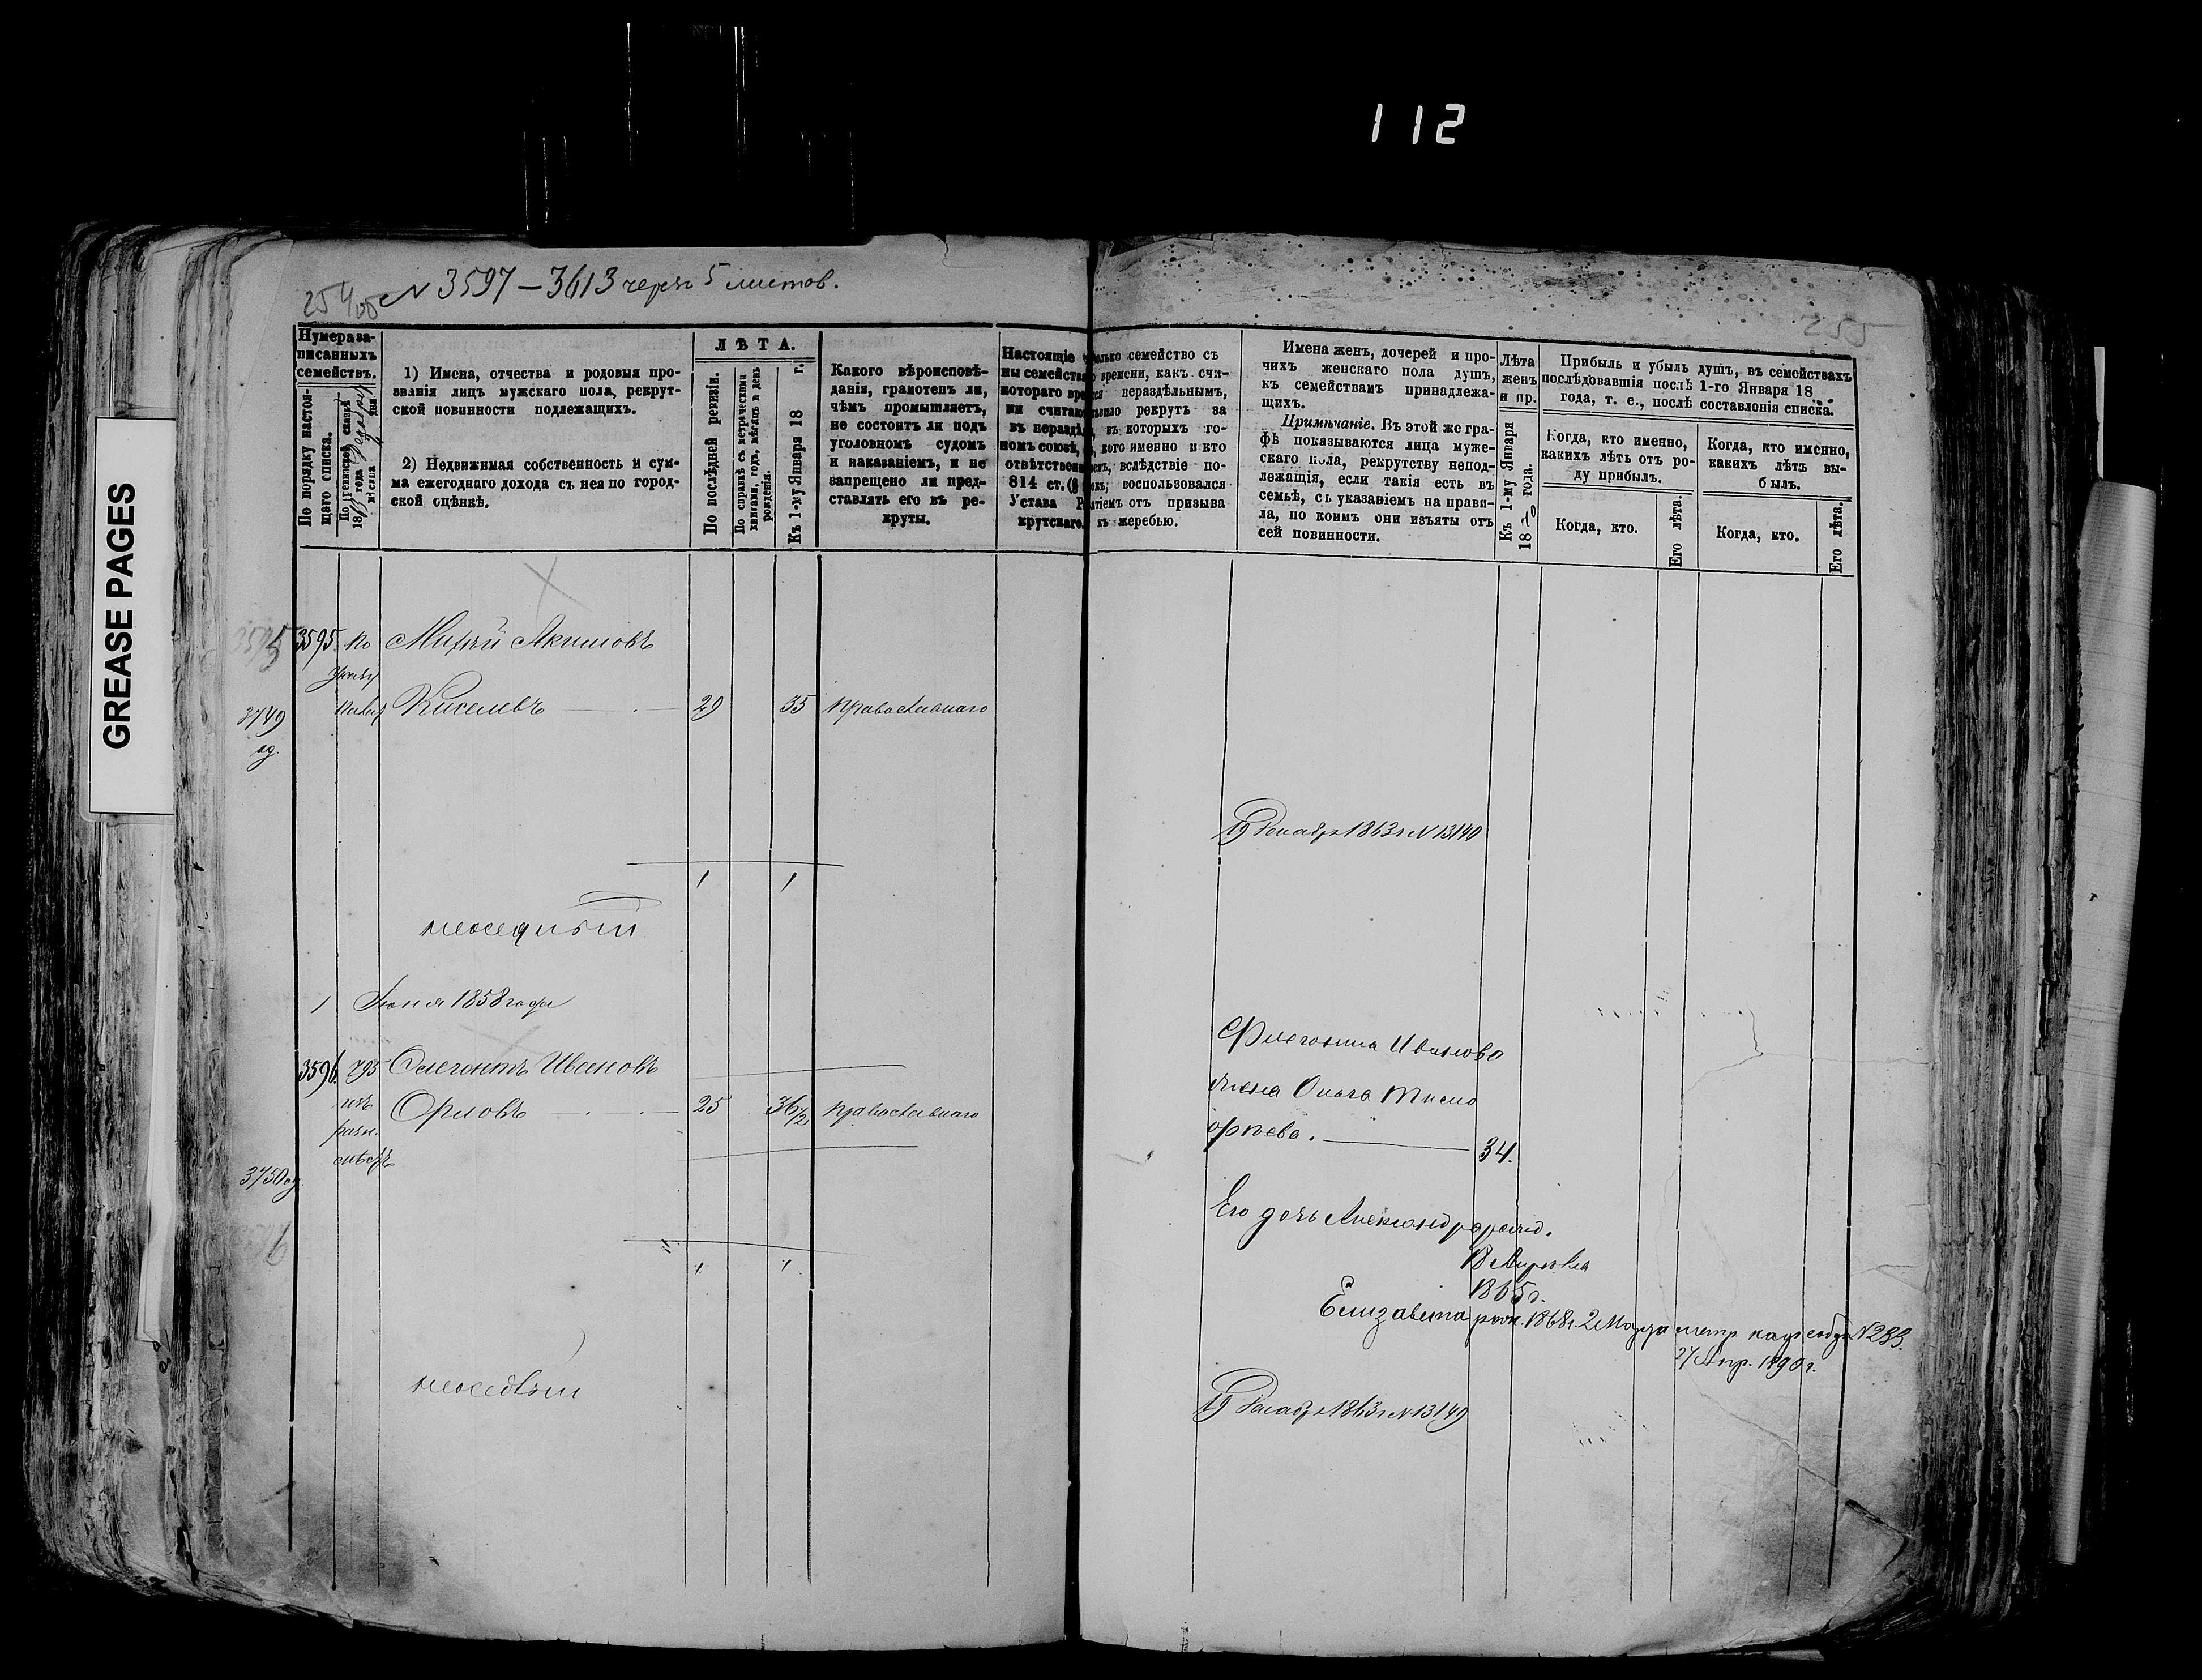 112
GREASE PAGES
254
N 3597 – 3613 черезъ 5 листов.
255
Нумера за-
писанныхъ
семействъ.
По порядку настоя-
щаго списка.
По ревизской сказкѣ
18 года
мѣсяца дня
1) Имена, отчества и родовыя про-
званія лицъ мужскаго пола, рекрут-
ской повинности подлежащихъ.
2) Недвижимая собственность и сум-
ма ежегоднаго дохода съ нея по город-
ской оцѣнкѣ.
ЛѢТА.
По послѣдней ревизіи.
По справкѣ съ метрическими
книгами, годъ, мѣсяцъ и день
рожденія.
Къ 1-му Января 18 г.
Какого вѣроисповѣ-
данія, грамотенъ ли,
чѣмъ промышляетъ,
не состоитъ ли подъ
уголовномъ судомъ
и наказаніемъ, и не
запрещено ли пред-
ставлять его въ ре-
круты.
Настоящіе
ны семейства
котораго вре
ни считаю
въ раздѣ
номъ союзѣ,
отвѣтствен
814 ст. (
Устава Р
крутскаго.
олько семейство съ
времени, какъ счи-
тся нераздѣльнымъ,
рекрутъ за
въ которыхъ го-
кого именно и кто
вслѣдствіе по-
воспользовался
отъ призыва
къ жеребью.
Имена женъ, дочерей и про-
чихъ женскаго пола душъ,
къ семействамъ принадлежа-
щихъ.
Примѣчаніе. Въ этой же гра-
фѣ показываются лица муже-
скаго пола, рекрутству непод-
лежащія, если такія есть въ
семьѣ, съ указаніемъ на прави-
ла, по коимъ они изъяты отъ
сей повинности.
Лѣта
женъ
и пр.
Къ 1-му Января
1870 года.
Прибыль и убыль душъ, въ семействахъ
послѣдовавшія послѣ 1-го Января 18
года, т. е., послѣ составленія списка.
Когда, кто именно,
какихъ лѣтъ отъ ро-
ду прибылъ.
Когда, кто.
Его лѣта.
Когда, кто именно,
какихъ лѣтъ вы-
былъ.
Когда, кто.
Его лѣта.
3595
3595. по Михѣй Акимовъ
указу
Киселевъ 29 35 православнаго
3749
19 Декабря 1863 г N 13140
1 1
1 Іюня 1858 года
3596. 795 Флегонтъ Ивановъ
изъ Орловъ 25 36 1/2 православнаго
3750
1 1
Флегонта Иванова
жена Ольга Тимо
фѣева. 34.
Его дочь Александра
18 Апрѣля
1865 г.
Елизавета рож. 1868 г. 2 Марта метр N 283.
27 Апр. 1890 г.
19 Декабря 1863 г N 13149